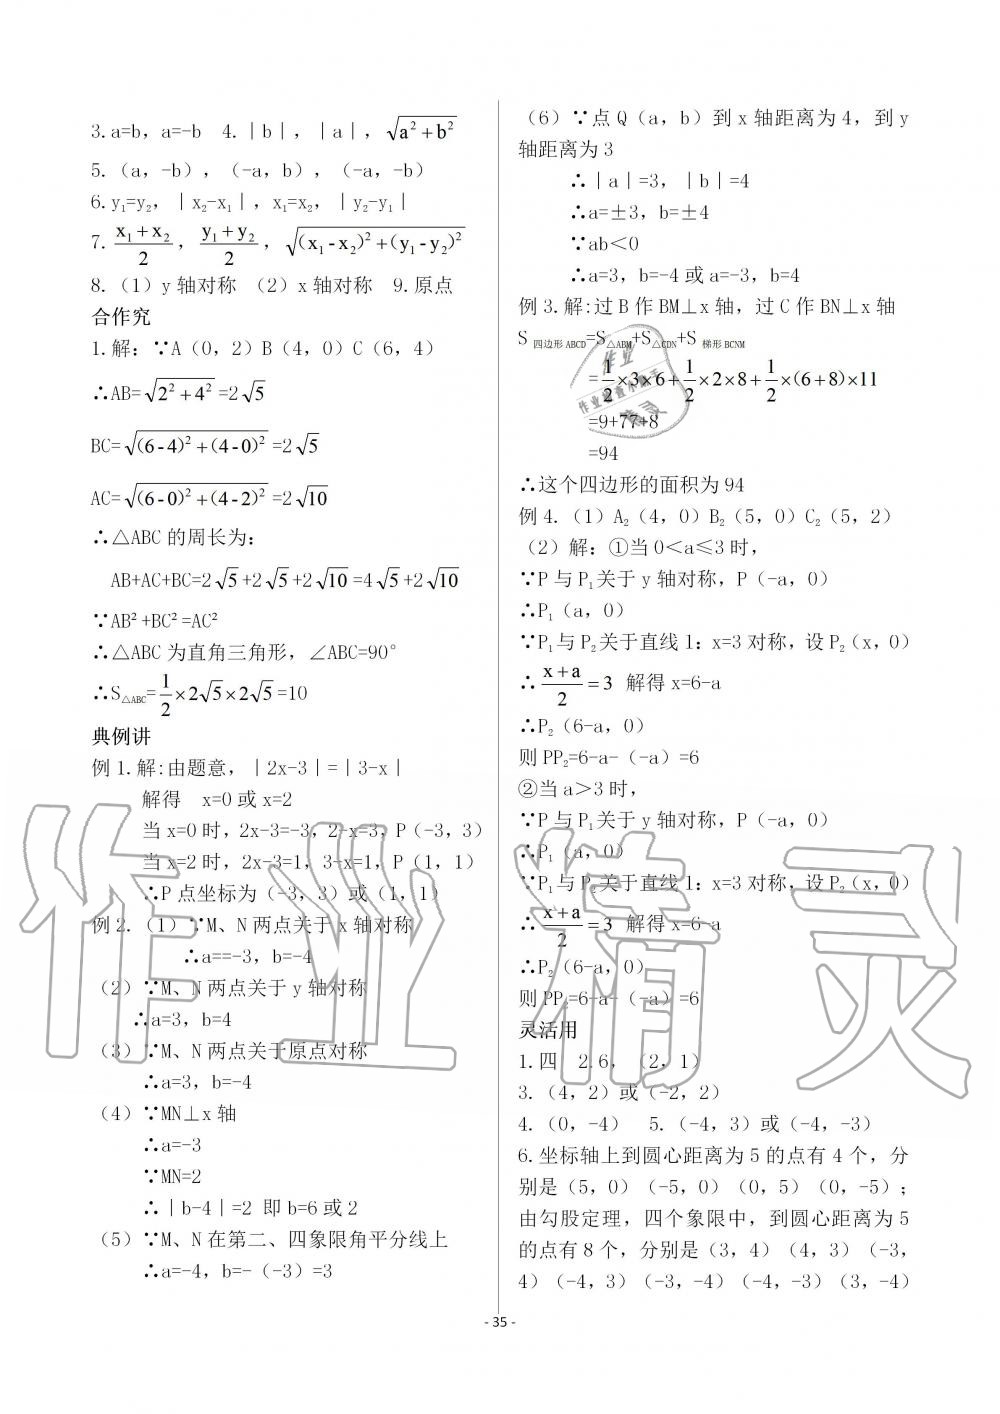 3.a=b, a=-b  4.|b|, |a|, √(a²+b²)
5.(a, -b), (-a, b), (-a, -b)
6.y₁=y₂, |x₂-x₁|, x₁=x₂, |y₂-y₁|
7. (x₁+x₂)/2, (y₁+y₂)/2, √((x₁-x₂)²+(y₁-y₂)²)
8.(1)y 轴对称 (2)x 轴对称  9.原点
合作究
1.解:∵A(0, 2)B(4, 0)C(6, 4)
∴AB=√(2²+4²)=2√5
BC=√((6-4)²+(4-0)²)=2√5
AC=√((6-0)²+(4-2)²)=2√10
∴△ABC 的周长为:
AB+AC+BC=2√5+2√5+2√10=4√5+2√10
∵AB²+BC²=AC²
∴△ABC 为直角三角形, ∠ABC=90°
∴S△ABC=1/2×2√5×2√5=10
典例讲
例 1.解:由题意, |2x-3|=|3-x|
解得  x=0 或 x=2
当 x=0 时, 2x-3=-3, 2-x=3, P(-3, 3)
当 x=2 时, 2x-3=1, 3-x=1, P(1, 1)
∴P 点坐标为(-3, 3)或(1, 1)
例 2.(1)∵M、N 两点关于 x 轴对称
∴a==-3, b=-4
(2)∵M、N 两点关于 y 轴对称
∴a=3, b=4
(3)∵M、N 两点关于原点对称
∴a=3, b=-4
(4)∵MN⊥x 轴
∴a=-3
∵MN=2
∴|b-4|=2 即 b=6 或 2
(5)∵M、N 在第二、四象限角平分线上
∴a=-4, b=-(-3)=3
(6)∵点 Q(a, b)到 x 轴距离为 4, 到 y
轴距离为 3
∴|a|=3, |b|=4
∴a=±3, b=±4
∵ab<0
∴a=3, b=-4 或 a=-3, b=4
例 3.解:过 B 作 BM⊥x 轴, 过 C 作 BN⊥x 轴
S 四边形 ABCD=S△ABM+S△CDN+S 梯形 BCNM
=1/2×3×6+1/2×2×8+1/2×(6+8)×11
=9+77+8
=94
∴这个四边形的面积为 94
例 4.(1)A₂(4, 0)B₂(5, 0)C₂(5, 2)
(2)解:①当 0<a≤3 时,
∵P 与 P₁关于 y 轴对称, P(-a, 0)
∴P₁(a, 0)
∵P₁与 P₂关于直线 l: x=3 对称, 设 P₂(x, 0)
∴(x+a)/2=3 解得 x=6-a
∴P₂(6-a, 0)
则 PP₂=6-a-(-a)=6
②当 a>3 时,
∵P 与 P₁关于 y 轴对称, P(-a, 0)
∴P₁(a, 0)
∵P₁与 P₂关于直线 l: x=3 对称, 设 P₂(x, 0)
∴(x+a)/2=3 解得 x=6-a
∴P₂(6-a, 0)
则 PP₂=6-a-(-a)=6
灵活用
1.四  2.6, (2, 1)
3.(4, 2)或(-2, 2)
4.(0, -4)  5.(-4, 3)或(-4, -3)
6.坐标轴上到圆心距离为 5 的点有 4 个, 分
别是(5, 0)(-5, 0)(0, 5)(0, -5);
由勾股定理, 四个象限中, 到圆心距离为 5
的点有 8 个, 分别是(3, 4)(4, 3)(-3,
4)(-4, 3)(-3, -4)(-4, -3)(3, -4)
- 35 -
作业精灵